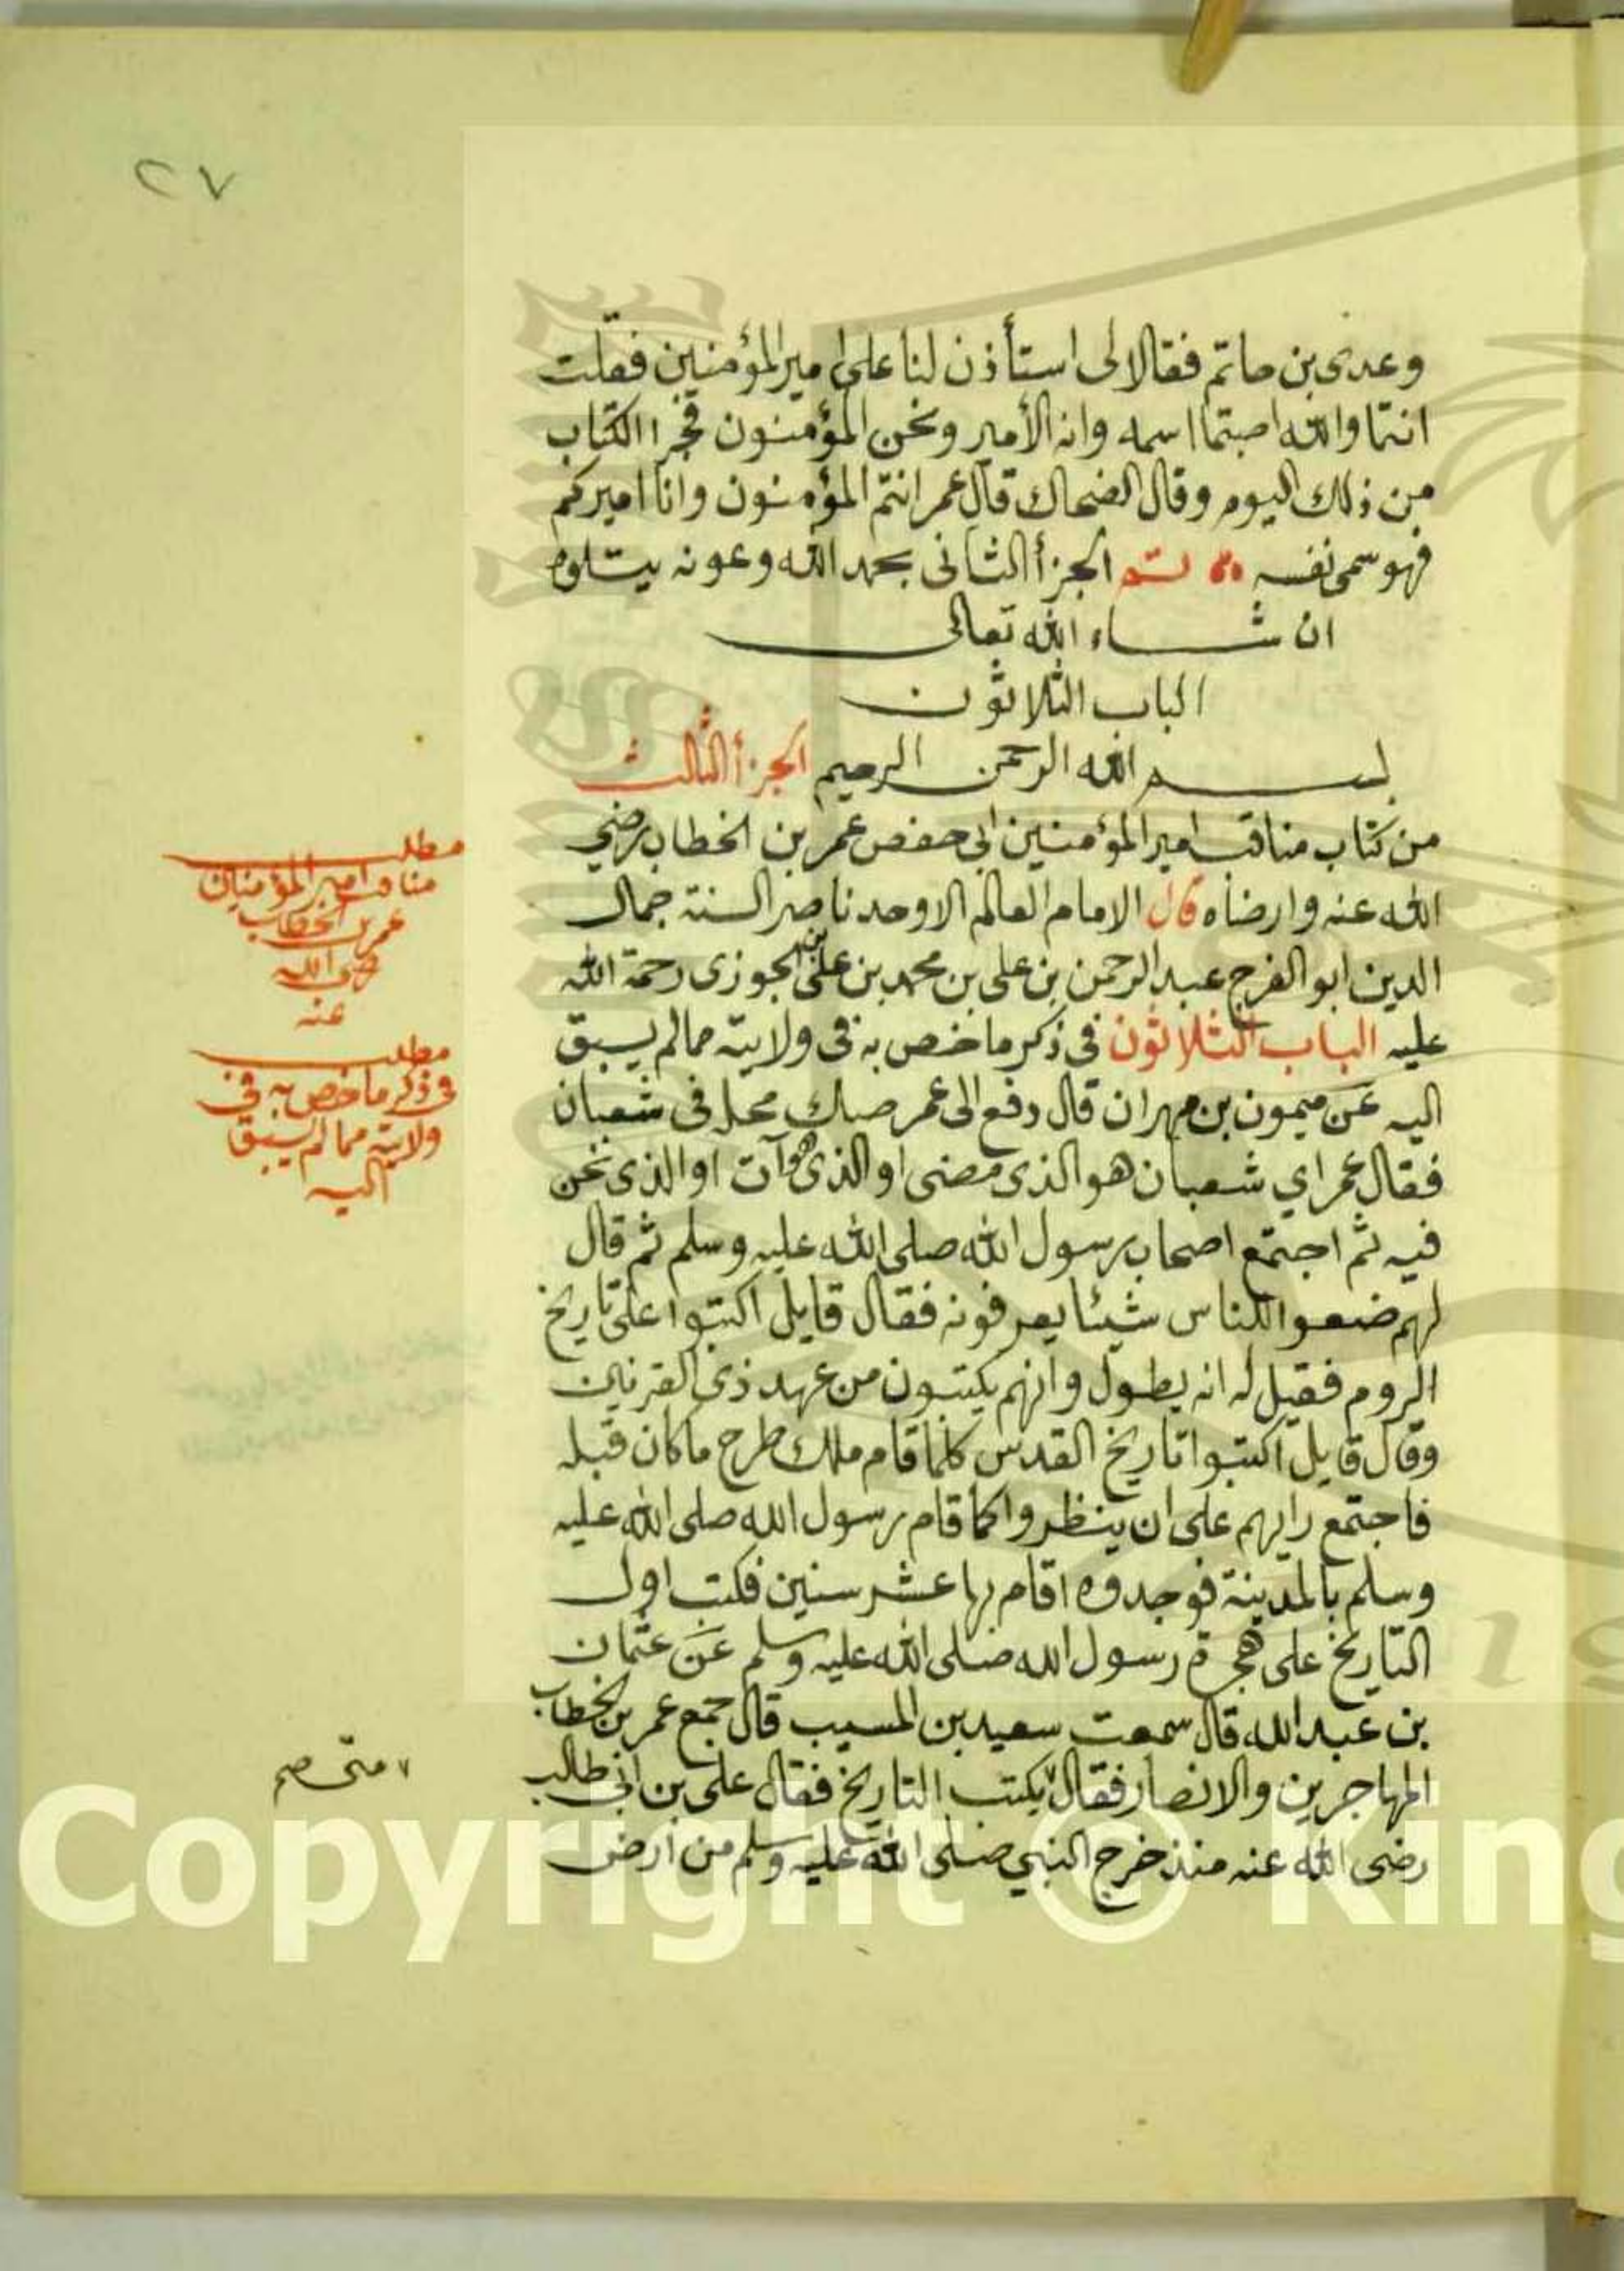 ٢٧
وعدى بن حاتم فقالا لى استأذن لنا على امير المؤمنين فقلت
انتما والله اصبتما اسمه وانه الأمير ونحن المؤمنون فجرا الكتاب
من ذلك اليوم وقال الضحاك قال عمر انتم المؤمنون وانا اميركم
فهو سمى نفسه تم الجزأ الثانى بحمد الله وعونه يتلوه
ان شاء الله تعالى
الباب الثلاثون
بسم الله الرحمن الرحيم الجزأ الثالث
من كتاب مناقب امير المؤمنين ابى حفص عمر بن الخطاب رضي
الله عنه وارضاه قال الامام العالم الاوحد ناصر السنة جمال
الدين ابو الفرج عبد الرحمن بن على بن محمد بن على بن الجوزى رحمة الله
عليه الباب الثلاثون فى ذكر ما خص به فى ولايته مما لم يسبق
اليه عن ميمون بن مهران قال دفع الى عمر صك محله فى شعبان
فقال عمر اي شعبان هو الذى مضى او الذى هو آت او الذى نحن
فيه ثم اجتمع اصحاب رسول الله صلى الله عليه وسلم ثم قال
لهم ضعوا للناس شيئا يعرفونه فقال قايل اكتبوا على تاريخ
الروم فقيل له انه يطول وانهم يكتبون من عهد ذى القرنين
وقال قايل اكتبوا تاريخ القدس كلما قام ملك طرح ما كان قبله
فاجتمع رايهم على ان ينظروا كما قام رسول الله صلى الله عليه
وسلم بالمدينة فوجدوه اقام بها عشر سنين فكتب اول
التاريخ على هجرة رسول الله صلى الله عليه وسلم عن عثمان
بن عبد الله قال سمعت سعيد بن المسيب قال جمع عمر بن الخطاب
المهاجرين والانصار فقال ٧ يكتب التاريخ فقال على بن ابى طالب
رضى الله عنه منذ خرج النبي صلى الله عليه وسلم من ارض
مطلب
مناقب امير المؤمنين
عمر بن الخطاب
رضى الله
عنه
مطلب
فى ذكر ما خص به في
ولايته مما لم يسبق
اليه
٧ متى صح
Copyright © King